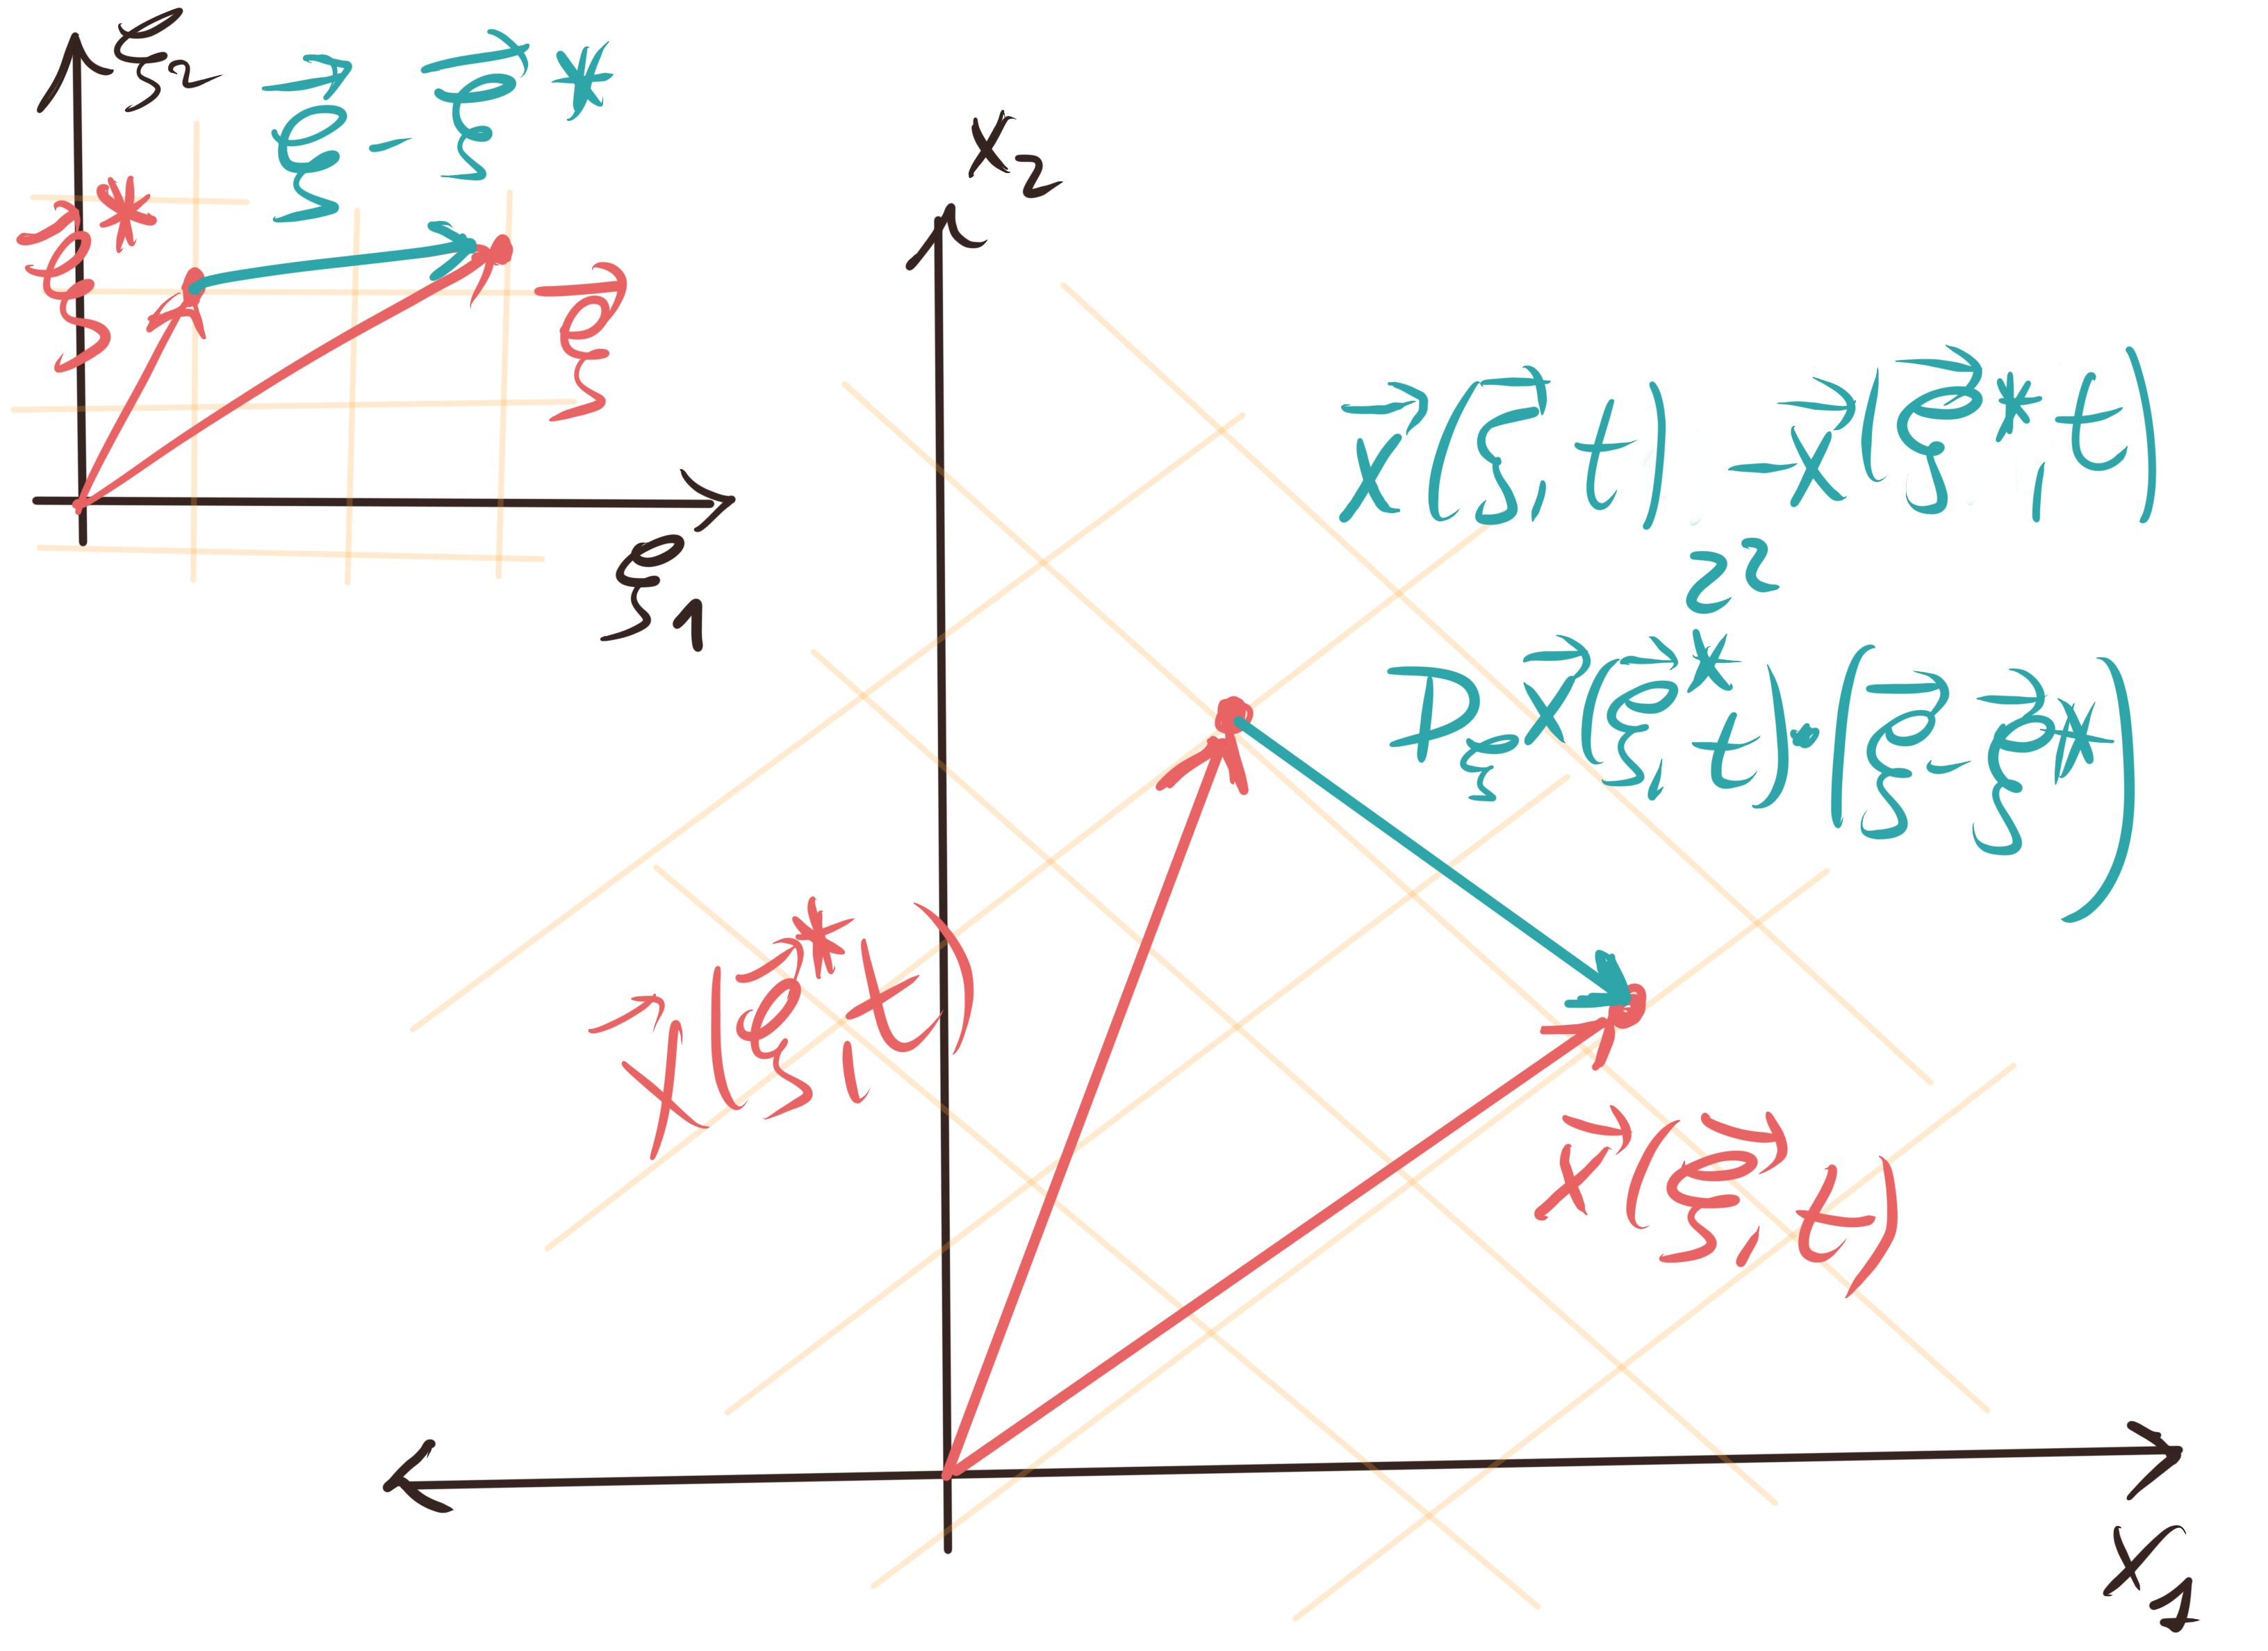 ξ₂
ξ⃗ - ξ⃗*
ξ⃗*
ξ⃗
ξ₁
x₂
x⃗(ξ⃗, t) - x⃗(ξ⃗*, t)
≈
D_ξ x⃗(ξ⃗*, t) · (ξ⃗ - ξ⃗*)
x⃗(ξ⃗*, t)
x⃗(ξ⃗, t)
x₁